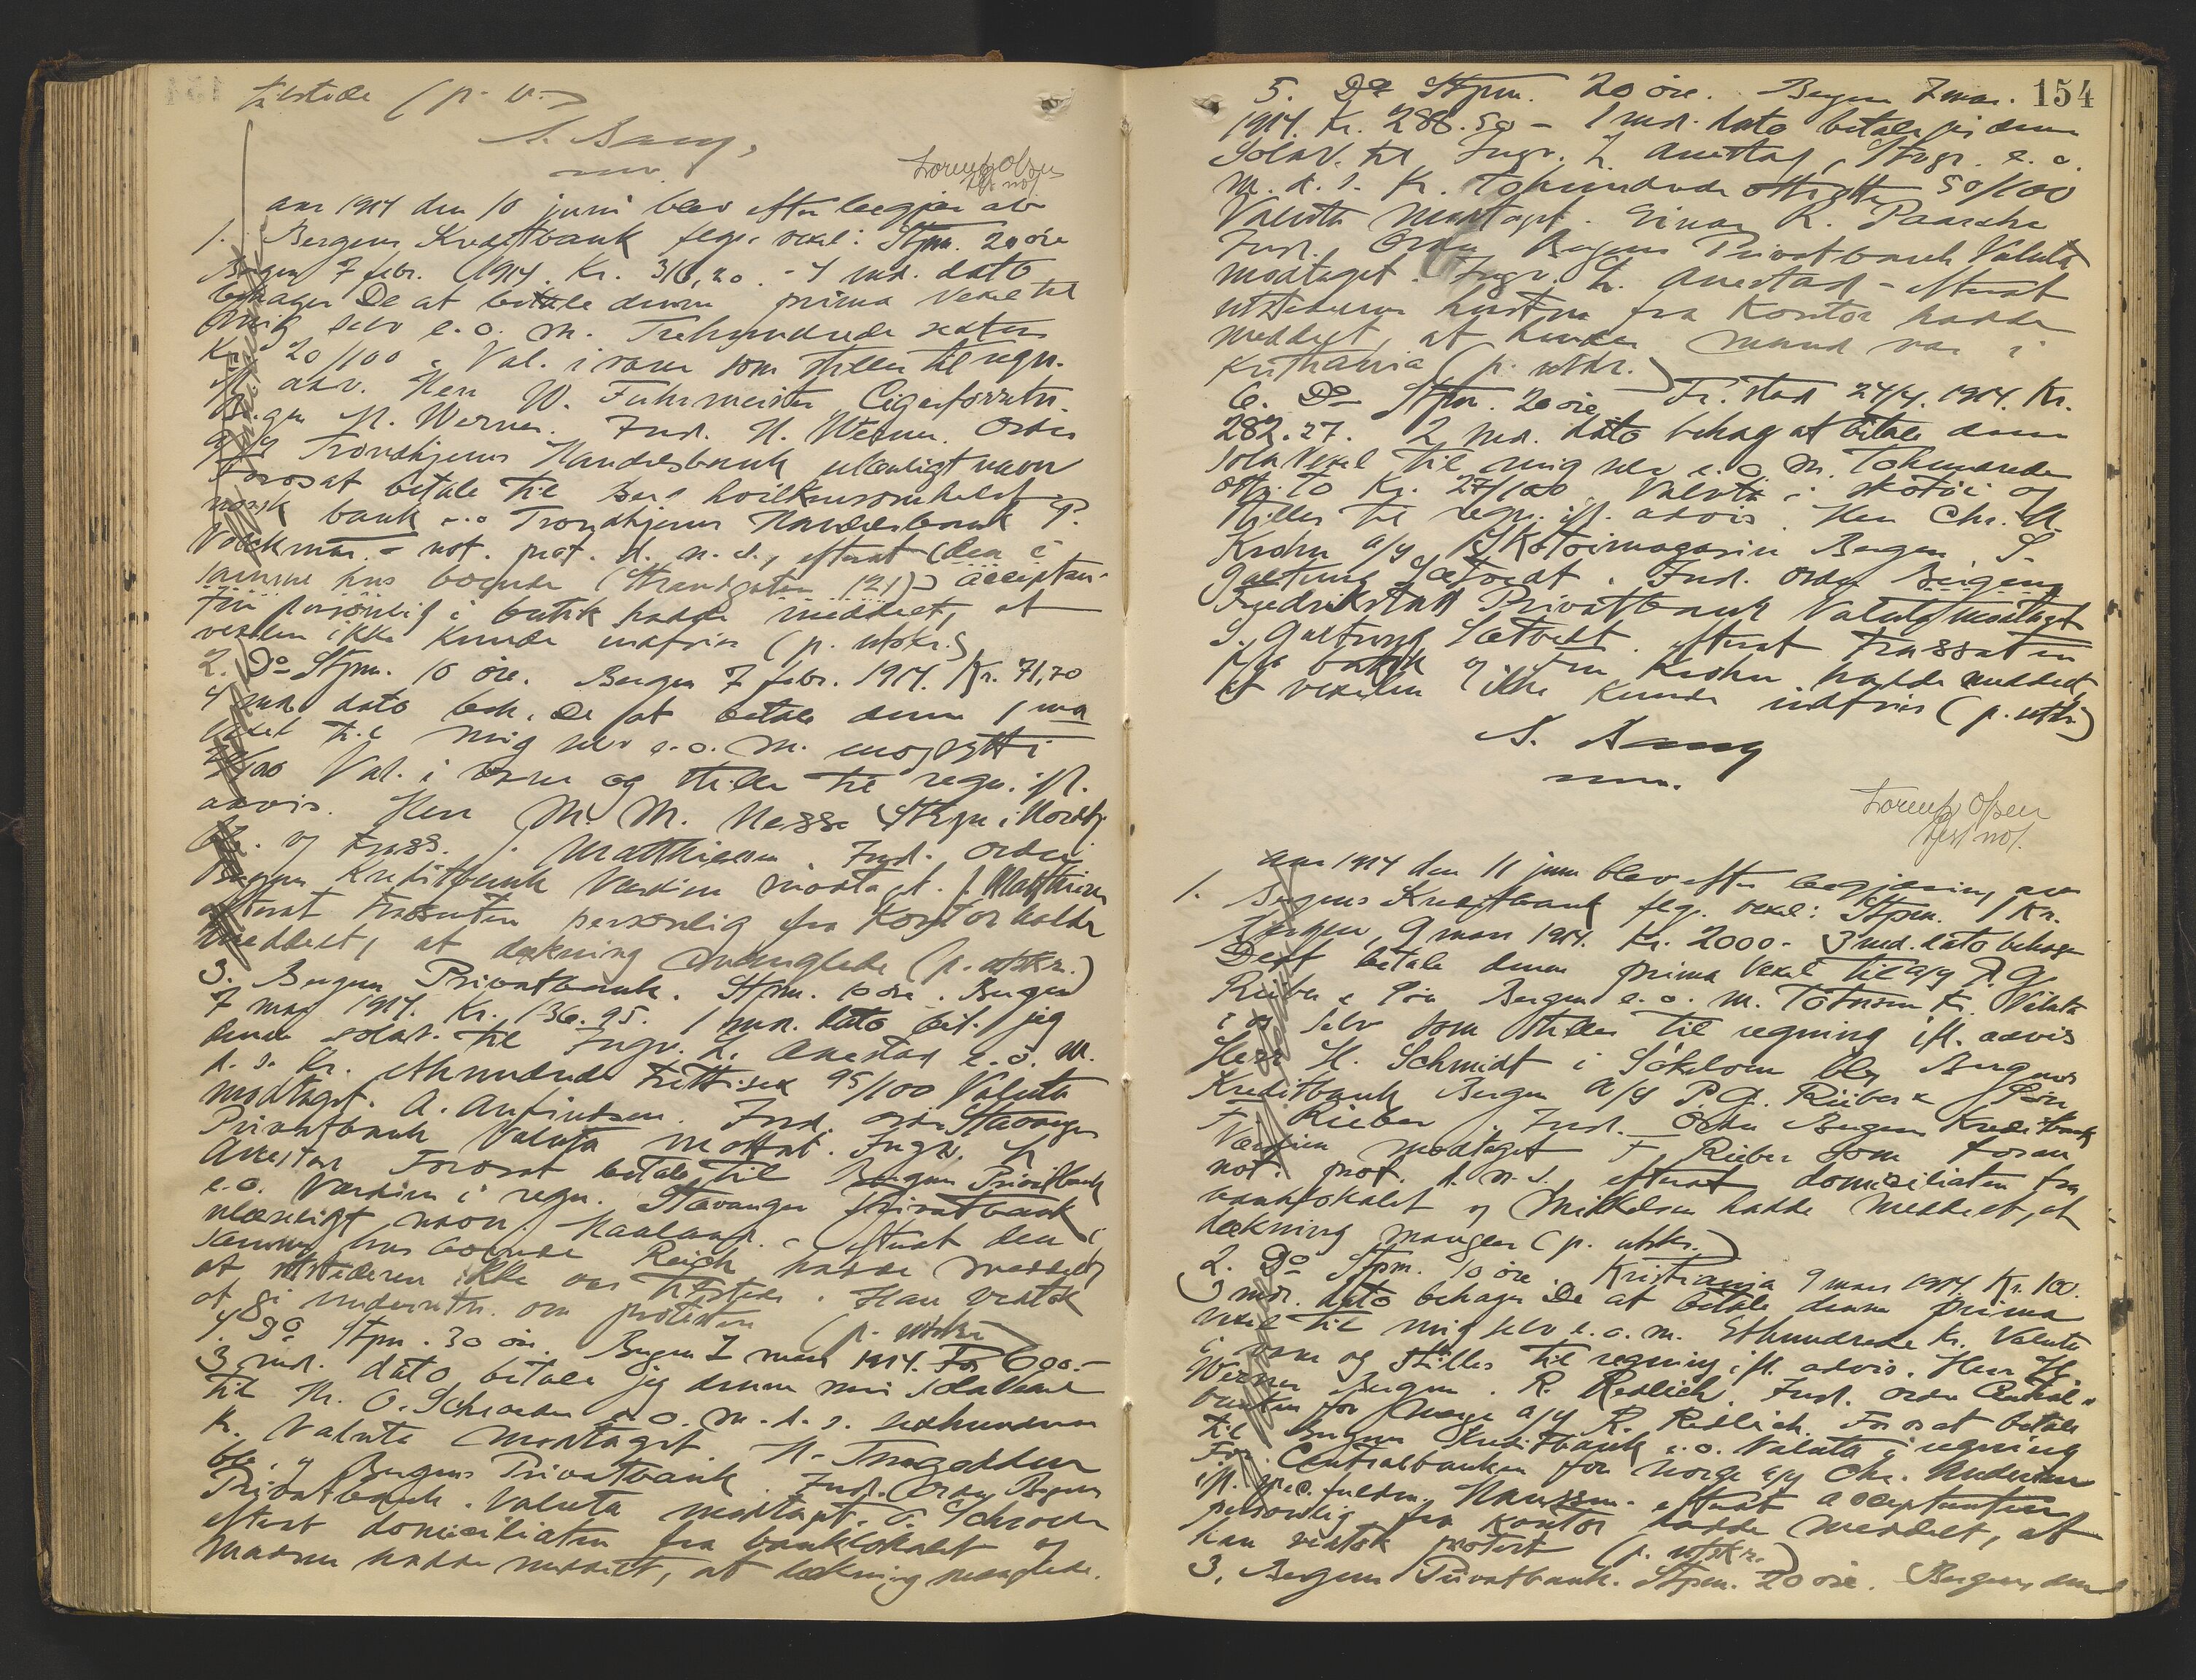 tilstede (p. v.)
A. Bang,
Lorentz Olsen
tfs not.
Aar 1914 den 10 juni blev efter begjær av
1. Bergens Kreditbank flg. vexel: Stpm. 20 øre
Bergen 7 febr. 1914. Kr. 316,20. - 4 md. dato
behager De at betale denne prima vexel til
mig selv e. o. m. Trehundrede seksten
Kr. 20/100. Val. i varer som stilles til regn.
if. adv. Herr W. Fuhrmeister Cigarforretn.
Bergen H. Werner. Ind. H. Werner. Ordre
Trondhjems Handelsbank ulæseligt navn
For os at betale til hvilkensomhelst
norsk bank e.o Trondhjems Handelsbank P.
Volckmar. - not. prot. d. n. s., efterat (den i
samme hus boende (Strandgaten 121)) acceptan-
ten personlig i butik hadde meddelt, at
vexlen ikke kunde indfries (p. utskr.)
2. Do Stpm. 10 øre. Bergen 7 febr. 1914. Kr. 71,20
4 md. dato beh. De at betale denne 1 ma
vexel til mig selv e. o. m. enogsytti
20/100 Val. i varer og stilles til regn. ifl.
advis. Herr M. M. Nesse
og trass. J. Matthiesen. Ind. Ordre
Bergens Kreditbank Værdien modtaget. J. Matthiesen
efterat trassenten personlig fra Kontor hadde
meddelt, at dækning manglede (p. utskr.)
3. Bergens Privatbank. Stpm. 10 øre. Bergen
7 mai 1914. Kr. 136.95. 1 md. dato bet. jeg
denne solav. til Ingv. L. Anestad e. o. m.
d. s. Kr. ethundrede trettisex 95/100 Valuta
modtaget. A. Anfindsen. Ind. ordre Stavanger
Privatbank Valuta mottat. Ingv. L.
Anestad For os at betale til Bergens Privatbank
e. o. Værdien i regn. Stavanger Privatbank
ulæseligt navn. Haaland. - efterat den i
samme hus boende Reich hadde meddelt
at utstederen ikke var tilstede. Han vedtok
at gi underretn. om protesten (p. utskr.)
4. Do Stpm. 30 øre. Bergen 7 mars 1914. For 600.-
3 md. dato betaler jeg denne min Solavexel
til Hr. O. Schrøder e. o. m. d. s. sexhundrede
Kr. Valuta modtaget.
bet. Bergens Privatbank Ind. Ordre Bergens
Privatbank. Valuta modtaget. O. Schrøder
efterat domiciliaten fra banklokalet og
Madsen hadde meddelt, at dækning manglede.
154
5. Do Stpm. 20 øre. Bergen 7 mai.
1914. Kr. 288.50 - 1 md. dato betaler jeg denne
Solav. til Ingv. L. Anestad, Stvgr. e. o.
m. d. s. Kr. Tohundrede ottiotte 50/100
Valuta Modtaget. Einar K. Paasche
Ind. Ordre Bergens Privatbank Valuta
modtaget. Ingv. L. Anestad - efterat
utstederens hustru fra Kontor hadde
meddelt, at hendes mand var i
Kristiania (p. utskr.)
6. Do Stpm. 20 øre Fr.stad 24/4. 1914. Kr.
282.27. 2 md. dato behag at betale denne
sola vexel til mig selv e. o. m. Tohundrede
otti to Kr. 27/100. Valuta i skotøi og
stilles til regn. ifl. advis. Herr Chr. A.
Krohn a/g Skotøimagasin Bergen S.
Gjeltung Sætvedt. Ind. ordre Bergens
Fredrikstad Privatbank Valuta modtaget
S. Gjeltung Sætvedt. efterat trassaten
fra butik og Fru Krohn hadde meddelt,
at vexelen ikke kunde indfries (p. utskr.)
A. Bang
Lorentz Olsen
tfs not.
Aar 1914 den 11 juni blev efter begjæring av
1. Bergens Kreditbank flg. vexel: Stpm. 1 Kr.
Bergen, 9 mars 1914. Kr. 2000.- 3 md. dato behage
De at betale denne prima vexel til a/g P. G.
Rieber & Søn Bergen e. o. m. Totusen Kr. Valuta
i os selv som stilles til regning ifl. advis
Herr H. Schmidt i Bergens
Kreditbank Bergen a/g P. G. Rieber & Søn
F. Rieber. Ind. Ordre Bergens Kreditbank
Værdien modtaget F. Rieber som foran
not. prot. d. n. s., efterat domiciliaten fra
banklokalet og Mikkelsen hadde meddelt, at
dækning mangler (p. utskr.)
2. Do Stpm. 10 øre. Kristiania 9 mars 1914. Kr. 100.
3 md. dato behager De at betale denne prima
vexel til mig selv e. o. m. Ethundrede Kr. Valuta
i varer og stilles til regning ifl. advis. Herr H.
Werner Bergen. R. Redlich. Ind. ordre Central-
banken for Norge a/g R. Redlich. For os at betale
til Bergens Kreditbank e. o. Valuta i regning
For Centralbanken for Norge a/g Chr. Andersen
ifl. spec. fuldm. Hanssen. efterat acceptanten
personlig fra kontor hadde meddelt, at
han vedtok protest (p. utskr.)
3. Bergens Privatbank. Stpm. 20 øre. Bergen den